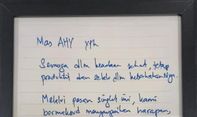 Mas AHY yth
Semoga dlm keadaan sehat, tetap
produktif dan selalu dlm kebahagiaan
Melalui pesan singkat ini, kami
bermaksud menyampaikan harapan,